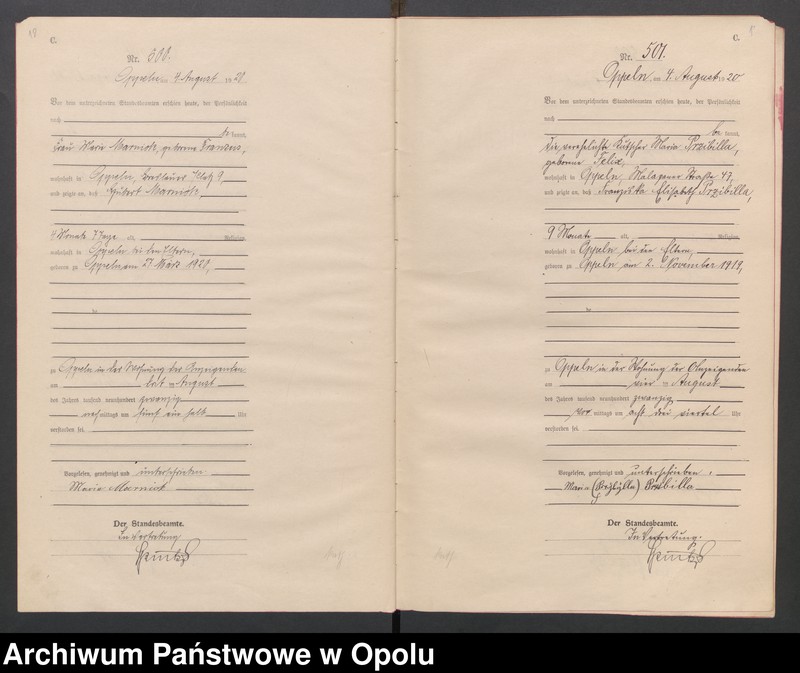 C.
Nr. 500.
Oppeln am 4. August 1920
Vor dem unterzeichneten Standesbeamten erschien heute, der Persönlichkeit
nach
be kannt,
Frau Maria geborene
wohnhaft in Oppeln, Breslauer Platz 9,
und zeigte an, daß
Monate 7 Tage alt, Religion,
wohnhaft in Oppeln bei den Eltern,
geboren zu Oppeln am März 1920,
de
zu Oppeln in der Wohnung der Anzeigenden
am August
des Jahres tausend neunhundert zwanzig
nach mittags um fünf ein halb Uhr
verstorben sei.
Vorgelesen, genehmigt und unterschrieben
Maria
Der Standesbeamte.
In Vertretung.
C.
Nr. 501.
Oppeln am 4. August 1920
Vor dem unterzeichneten Standesbeamten erschien heute, der Persönlichkeit
nach
be kannt,
die verehelichte Kutscher Maria Przibilla,
geborene Felix,
wohnhaft in Oppeln, Malapaner Straße 47,
und zeigte an, daß Franziska Elisabeth Przibilla,
9 Monate alt, Religion,
wohnhaft in Oppeln bei den Eltern,
geboren zu Oppeln am 2. November 1919,
de
zu Oppeln in der Wohnung der Anzeigenden
am vier ten August
des Jahres tausend neunhundert zwanzig
vor mittags um acht drei viertel Uhr
verstorben sei.
Vorgelesen, genehmigt und unterschrieben.
Maria Przibilla
Der Standesbeamte.
In Vertretung.
Archiwum Państwowe w Opolu